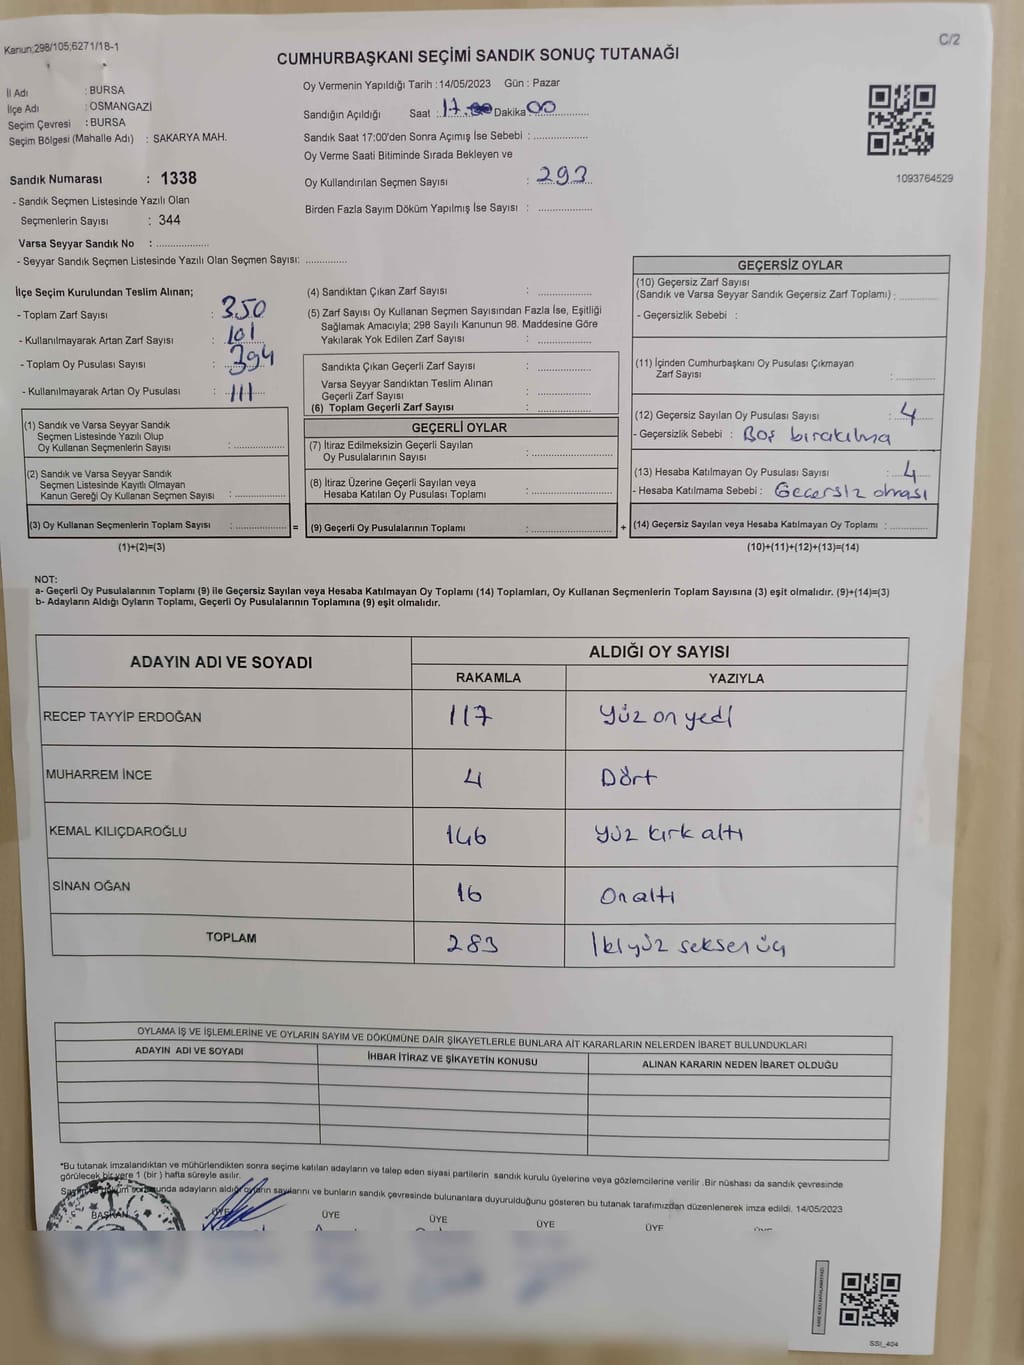 Kanun;298/105;6271/18-1
C/2
CUMHURBAŞKANI SEÇİMİ SANDIK SONUÇ TUTANAĞI
İl Adı : BURSA
İlçe Adı : OSMANGAZİ
Seçim Çevresi : BURSA
Seçim Bölgesi (Mahalle Adı) : SAKARYA MAH.
Sandık Numarası : 1338
- Sandık Seçmen Listesinde Yazılı Olan
Seçmenlerin Sayısı : 344
Varsa Seyyar Sandık No : ..................
- Seyyar Sandık Seçmen Listesinde Yazılı Olan Seçmen Sayısı: ..............
Oy Vermenin Yapıldığı Tarih : 14/05/2023 Gün : Pazar
Sandığın Açıldığı Saat : 17. Dakika 00
Sandık Saat 17:00'den Sonra Açımış İse Sebebi : ..................
Oy Verme Saati Bitiminde Sırada Bekleyen ve
Oy Kullandırılan Seçmen Sayısı : 293
Birden Fazla Sayım Döküm Yapılmış İse Sayısı : ..................
1093764529
İlçe Seçim Kurulundan Teslim Alınan;
- Toplam Zarf Sayısı : 350
- Kullanılmayarak Artan Zarf Sayısı : 101
- Toplam Oy Pusulası Sayısı : 394
- Kullanılmayarak Artan Oy Pusulası : 111
(1) Sandık ve Varsa Seyyar Sandık
Seçmen Listesinde Yazılı Olup
Oy Kullanan Seçmenlerin Sayısı : ..............
(2) Sandık ve Varsa Seyyar Sandık
Seçmen Listesinde Kayıtlı Olmayan
Kanun Gereği Oy Kullanan Seçmen Sayısı : ..............
(3) Oy Kullanan Seçmenlerin Toplam Sayısı : .............. =
(1)+(2)=(3)
(4) Sandıktan Çıkan Zarf Sayısı : ..............
(5) Zarf Sayısı Oy Kullanan Seçmen Sayısından Fazla İse, Eşitliği
Sağlamak Amacıyla; 298 Sayılı Kanunun 98. Maddesine Göre
Yakılarak Yok Edilen Zarf Sayısı : ..............
Sandıkta Çıkan Geçerli Zarf Sayısı : ..............
Varsa Seyyar Sandıktan Teslim Alınan
Geçerli Zarf Sayısı : ..............
(6) Toplam Geçerli Zarf Sayısı : ..............
GEÇERLİ OYLAR
(7) İtiraz Edilmeksizin Geçerli Sayılan
Oy Pusulalarının Sayısı : ..............
(8) İtiraz Üzerine Geçerli Sayılan veya
Hesaba Katılan Oy Pusulası Toplamı : ..............
(9) Geçerli Oy Pusulalarının Toplamı : .............. +
GEÇERSİZ OYLAR
(10) Geçersiz Zarf Sayısı
(Sandık ve Varsa Seyyar Sandık Geçersiz Zarf Toplamı) : ..........
- Geçersizlik Sebebi :
(11) İçinden Cumhurbaşkanı Oy Pusulası Çıkmayan
Zarf Sayısı : ..........
(12) Geçersiz Sayılan Oy Pusulası Sayısı : 4
- Geçersizlik Sebebi : Boş bırakılma
(13) Hesaba Katılmayan Oy Pusulası Sayısı : 4
- Hesaba Katılmama Sebebi : Geçersiz olması
(14) Geçersiz Sayılan veya Hesaba Katılmayan Oy Toplamı : ..........
(10)+(11)+(12)+(13)=(14)
NOT:
a- Geçerli Oy Pusulalarının Toplamı (9) ile Geçersiz Sayılan veya Hesaba Katılmayan Oy Toplamı (14) Toplamları, Oy Kullanan Seçmenlerin Toplam Sayısına (3) eşit olmalıdır. (9)+(14)=(3)
b- Adayların Aldığı Oyların Toplamı, Geçerli Oy Pusulalarının Toplamına (9) eşit olmalıdır.
ADAYIN ADI VE SOYADI
ALDIĞI OY SAYISI
RAKAMLA YAZIYLA
RECEP TAYYİP ERDOĞAN 117 Yüz on yedi
MUHARREM İNCE 4 Dört
KEMAL KILIÇDAROĞLU 146 Yüz kırk altı
SİNAN OĞAN 16 On altı
TOPLAM 283 İki yüz seksen üç
OYLAMA İŞ VE İŞLEMLERİNE VE OYLARIN SAYIM VE DÖKÜMÜNE DAİR ŞİKAYETLERLE BUNLARA AİT KARARLARIN NELERDEN İBARET BULUNDUKLARI
ADAYIN ADI VE SOYADI İHBAR İTİRAZ VE ŞİKAYETİN KONUSU ALINAN KARARIN NEDEN İBARET OLDUĞU
*Bu tutanak imzalandıktan ve mühürlendikten sonra seçime katılan adayların ve talep eden siyasi partilerin sandık kurulu üyelerine veya gözlemcilerine verilir .Bir nüshası da sandık çevresinde
görülecek bir yere 1 (bir ) hafta süreyle asılır.
adayların aldığı oyların sayılarını ve bunların sandık çevresinde bulunanlara duyurulduğunu gösteren bu tutanak tarafımızdan düzenlenerek imza edildi. 14/05/2023
BAŞKAN ÜYE ÜYE ÜYE ÜYE ÜYE
SSI_404